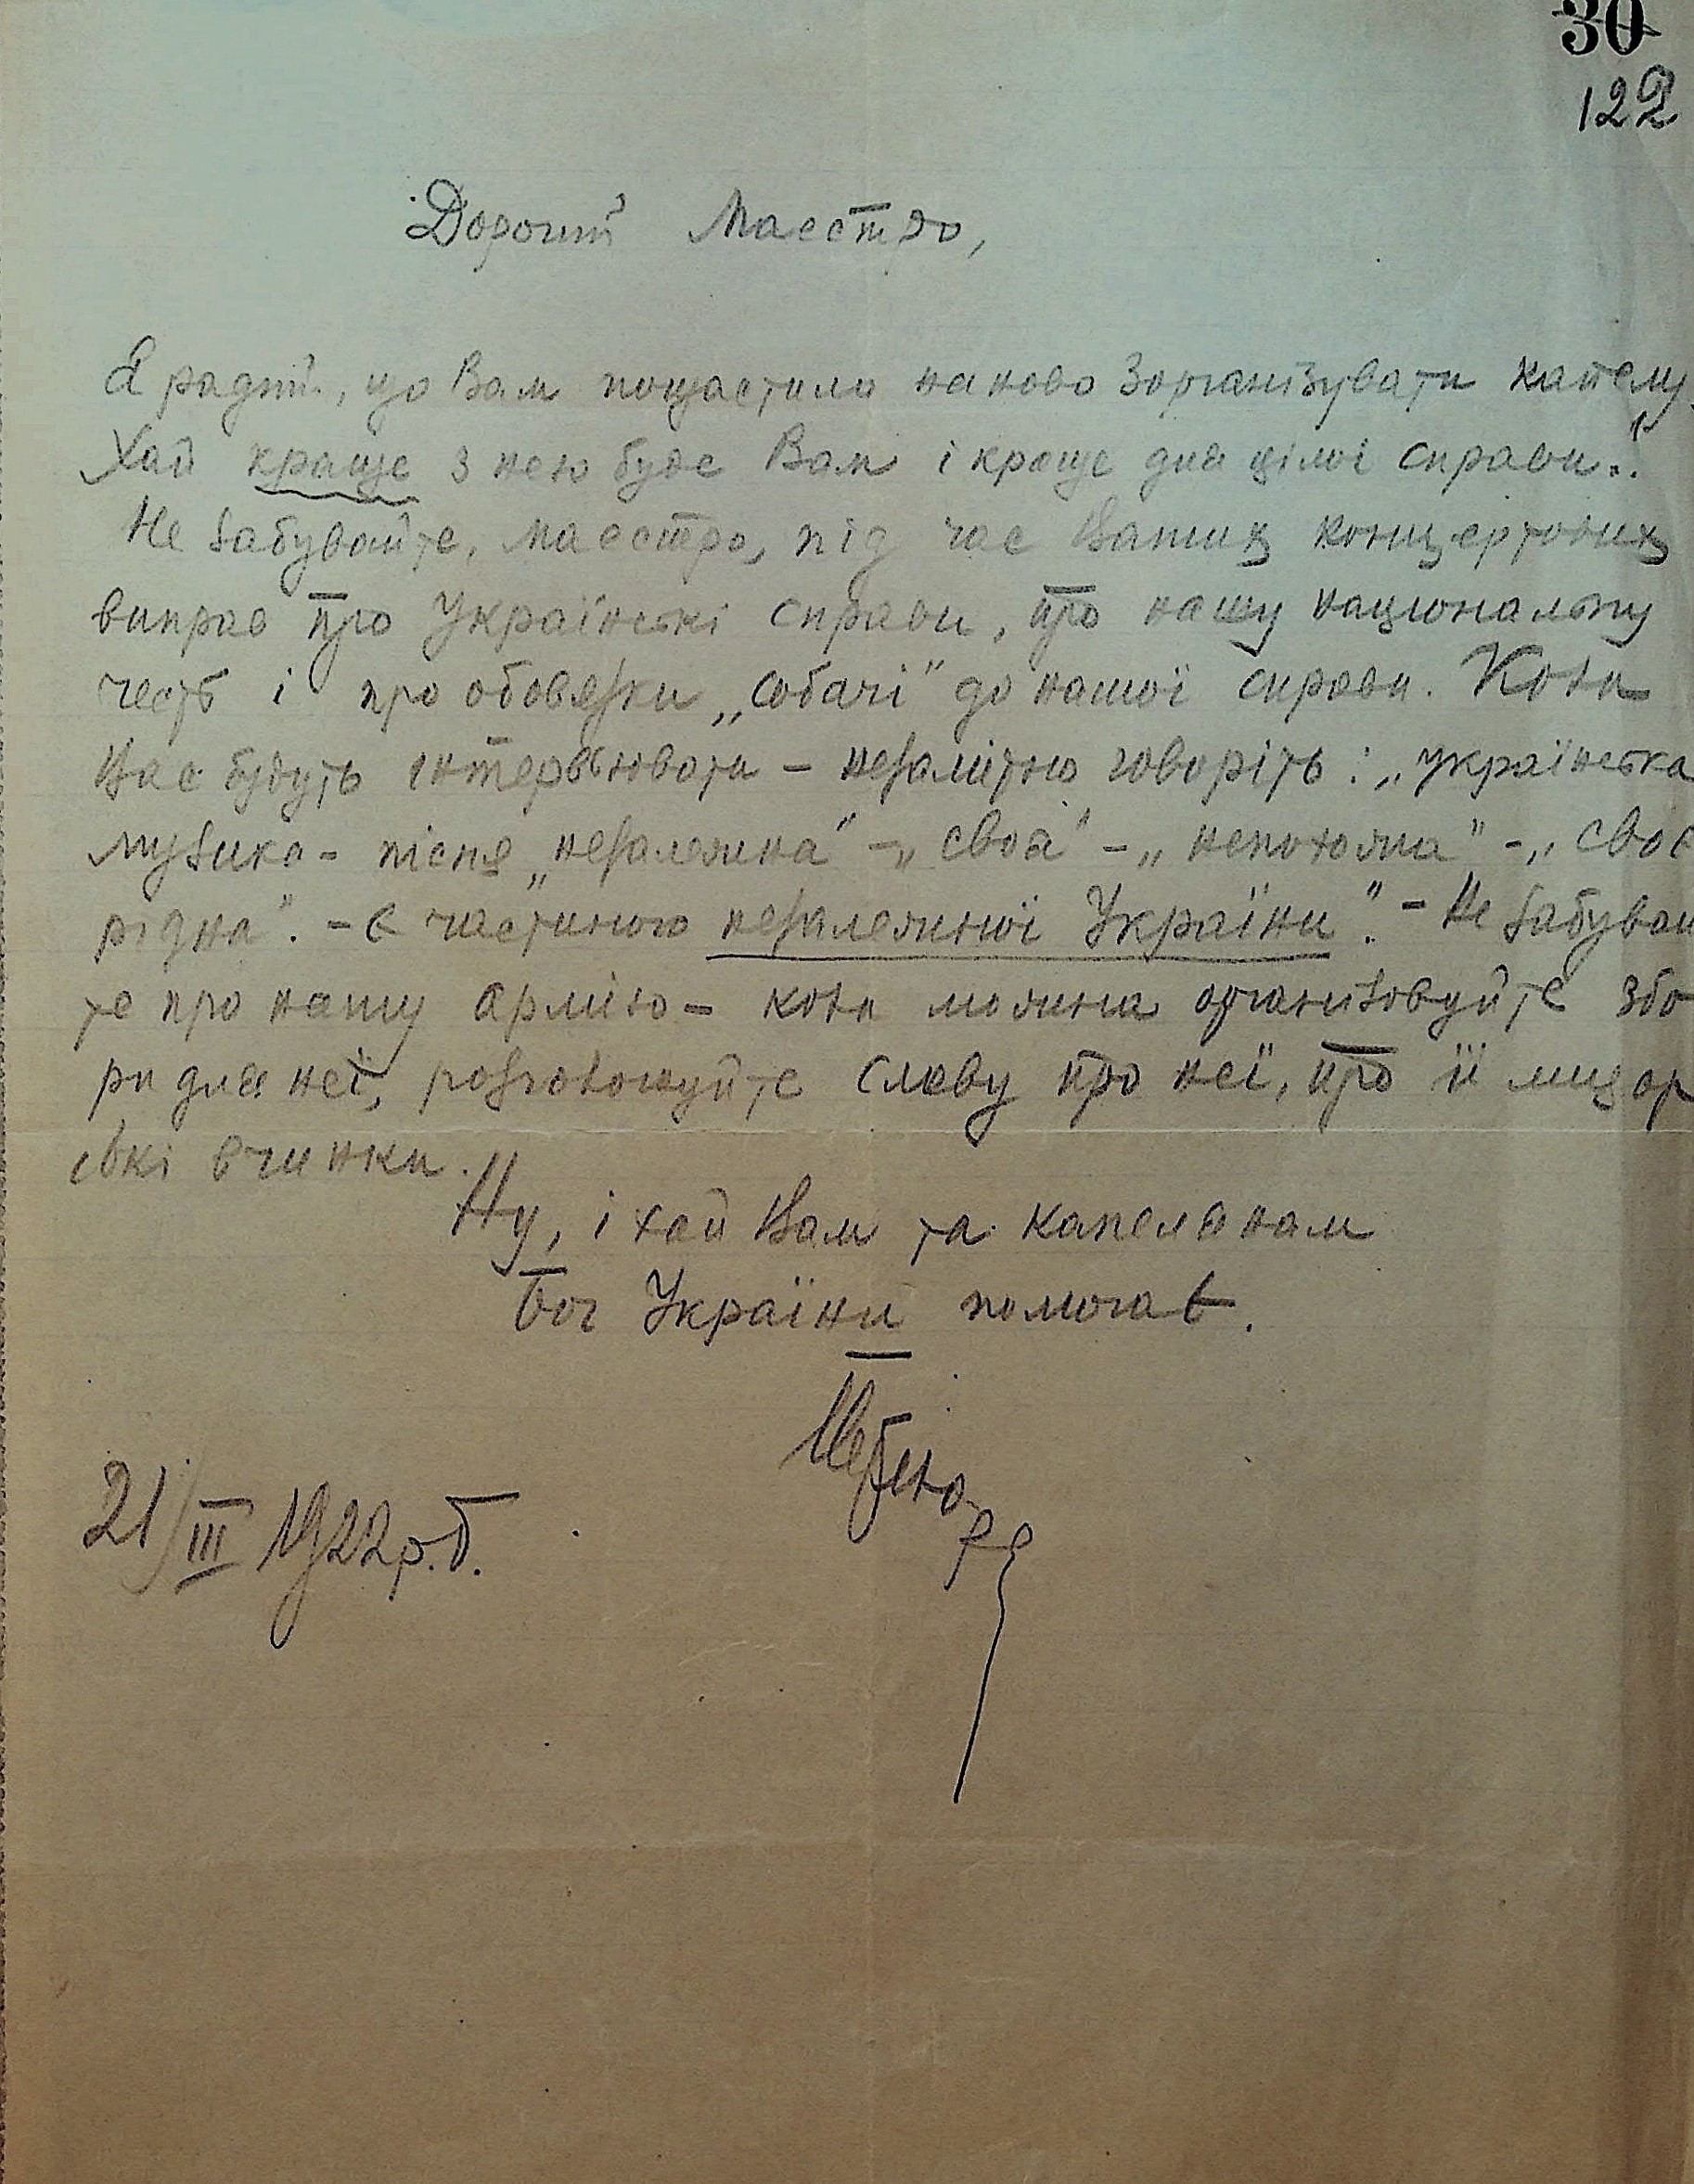 30
122
Дорогий Маестро,
Я радий, що Вам пощастило наново зорганізувати капелу.
Хай краще з нею буде Вам і краще для цілої справи..!
Не забувайте, Маестро, під час Ваших концертових
виправ про Українські справи, про нашу національну
честь і про обовязки „собачі" до нашої справи. Коли
Вас будуть інтервьювати – незамітно говоріть: „українська
музика – пісня „незалежна" – „своя" – „непохожа" – „своє
рідна". – є частиною незалежної України". – Не забувай
те про нашу Армію – коли можна організовуйте збо
ри для неї, розголошуйте славу про неї, про її лицар
ські вчинки.
Ну, і хай Вам та капелянам
Бог України помогає.
21/III 1922 р. Б.